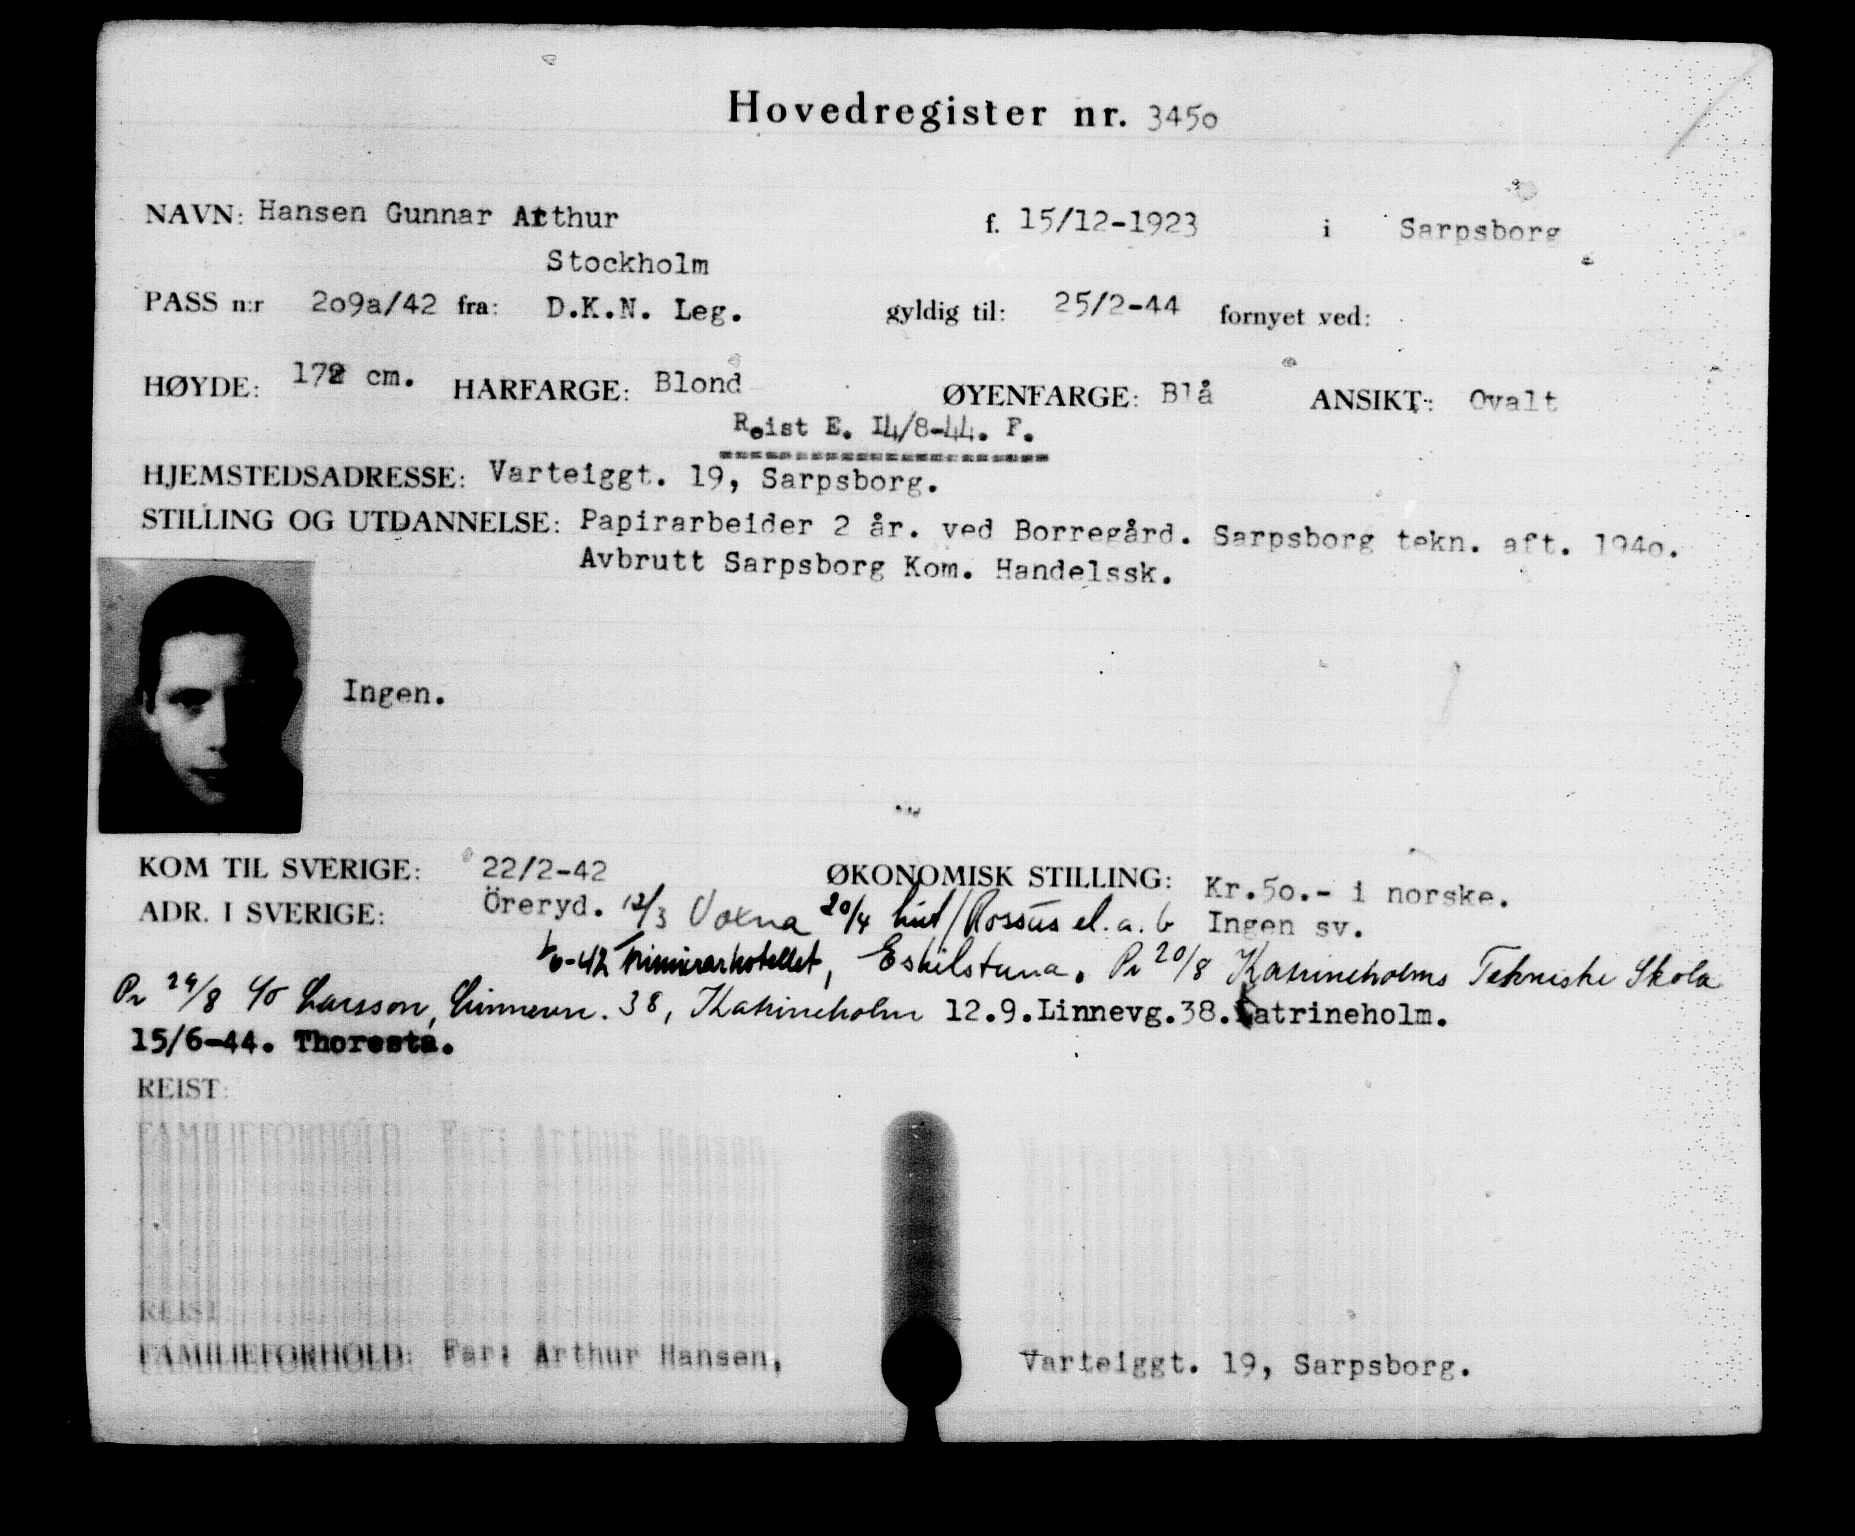 Hovedregister nr. 3450
NAVN: Hansen Gunnar Arthur f. 15/12-1923 i Sarpsborg
Stockholm
PASS n:r 209a/42 fra: D.K.N. Leg. gyldig til: 25/2-44 fornyet ved:
HØYDE: 172 cm. HARFARGE: Blond ØYENFARGE: Blå ANSIKT: Ovalt
Reist E. 14/8-44. F.
HJEMSTEDSADRESSE: Varteiggt. 19, Sarpsborg.
STILLING OG UTDANNELSE: Papirarbeider 2 år. ved Borregård. Sarpsborg tekn. aft. 1940.
Avbrutt Sarpsborg Kom. Handelssk.
Ingen.
KOM TIL SVERIGE: 22/2-42 ØKONOMISK STILLING: Kr.50.- i norske.
ADR. I SVERIGE: Öreryd. 12/3 Voxna 20/4 el. a. b Ingen sv.
Eskilstuna. Pr 20/8 Katrineholms Tekniske Skola
Pr 29/8 c/o Larsson, 38, Katrineholm 12.9.Linnevg.38.Katrineholm.
15/6-44. Thoresta.
REIST:
FAMILIEFORHOLD: Far: Arthur Hansen
REIST
FAMILIEFORHOLD: Far: Arthur Hansen, Varteiggt. 19, Sarpsborg.